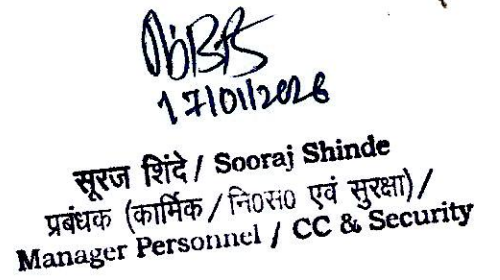 17/01/2026
सूरज शिंदे / Sooraj Shinde
प्रबंधक (कार्मिक / नि०स० एवं सुरक्षा) /
Manager Personnel / CC & Security